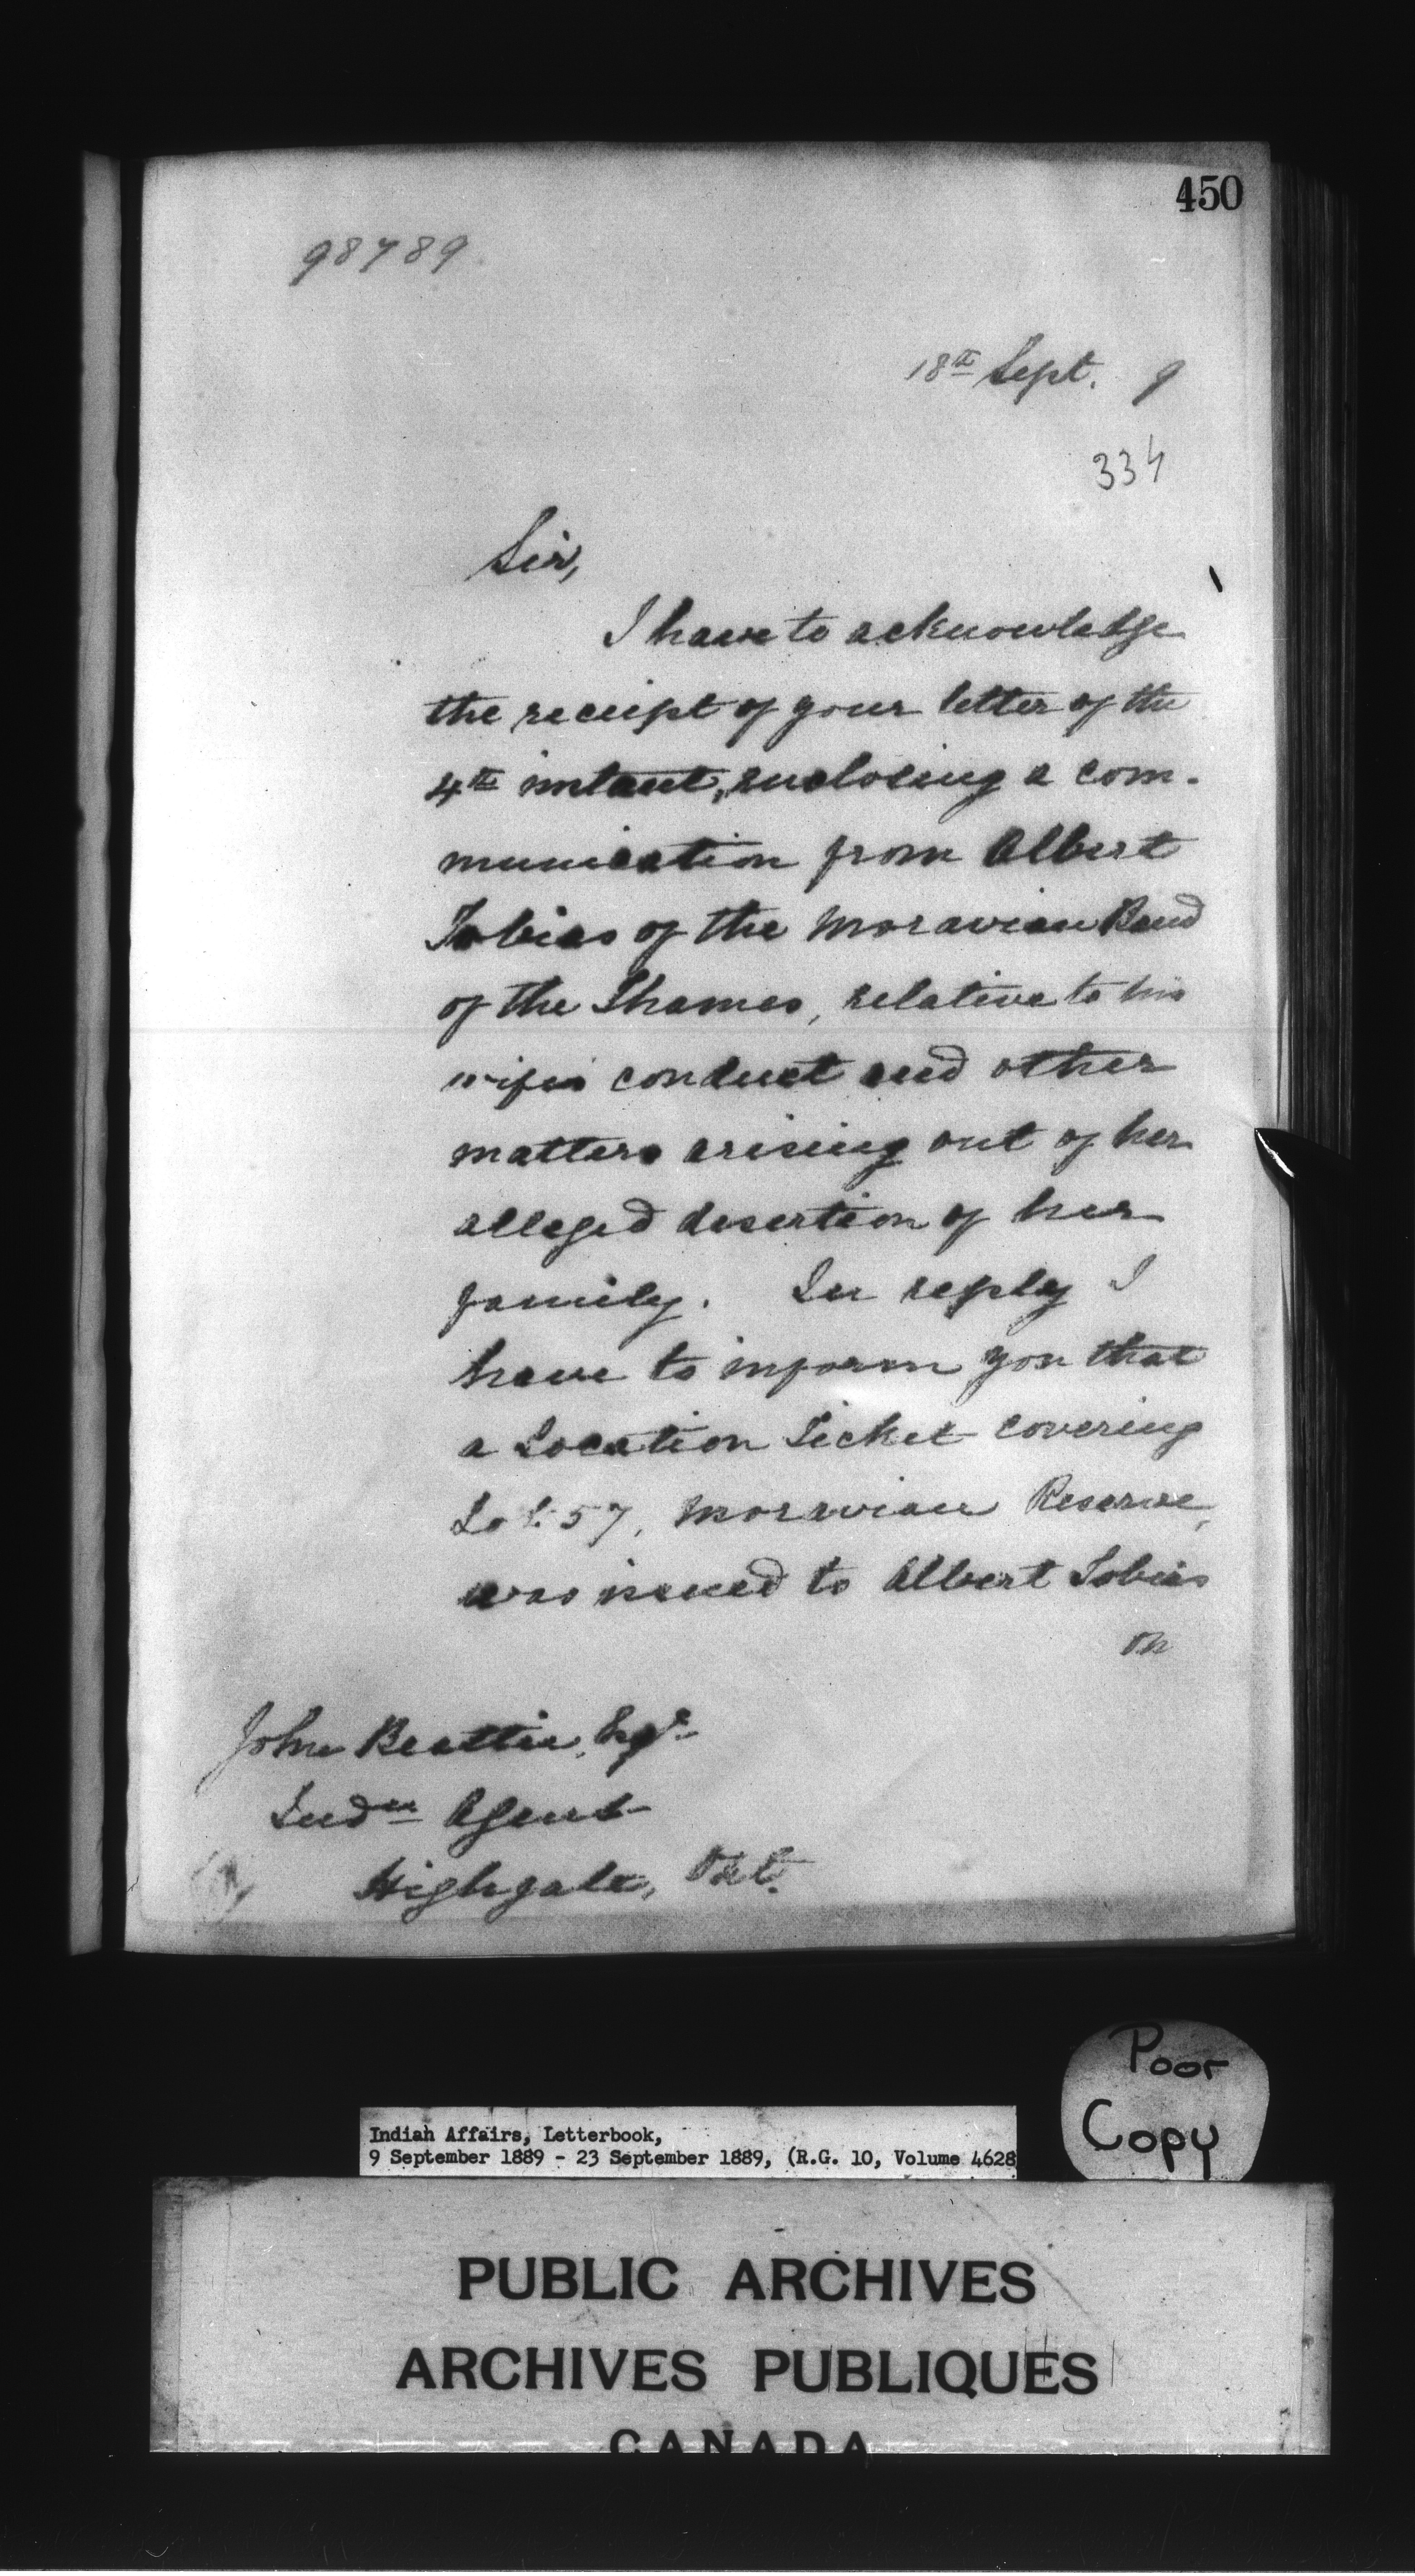 450
98789
18th Sept. 9
334
Sir,
I have to acknowledge
the receipt of your letter of the
4th instant, enclosing a com-
munication from Albert
Tobias of the Moravian Band
of the Thames, relative to his
wife's conduct and other
matters arising out of her
alleged desertion of her
family. In reply I
have to inform you that
a Location Ticket covering
Lot 57, Moravian Reserve,
was issued to Albert Tobias
on
John Beattie, Esqr
Indn Agent
Highgate, Ont.
Poor
Copy
Indian Affairs, Letterbook,
9 September 1889 - 23 September 1889, (R.G. 10, Volume 4628
PUBLIC ARCHIVES
ARCHIVES PUBLIQUES
CANADA